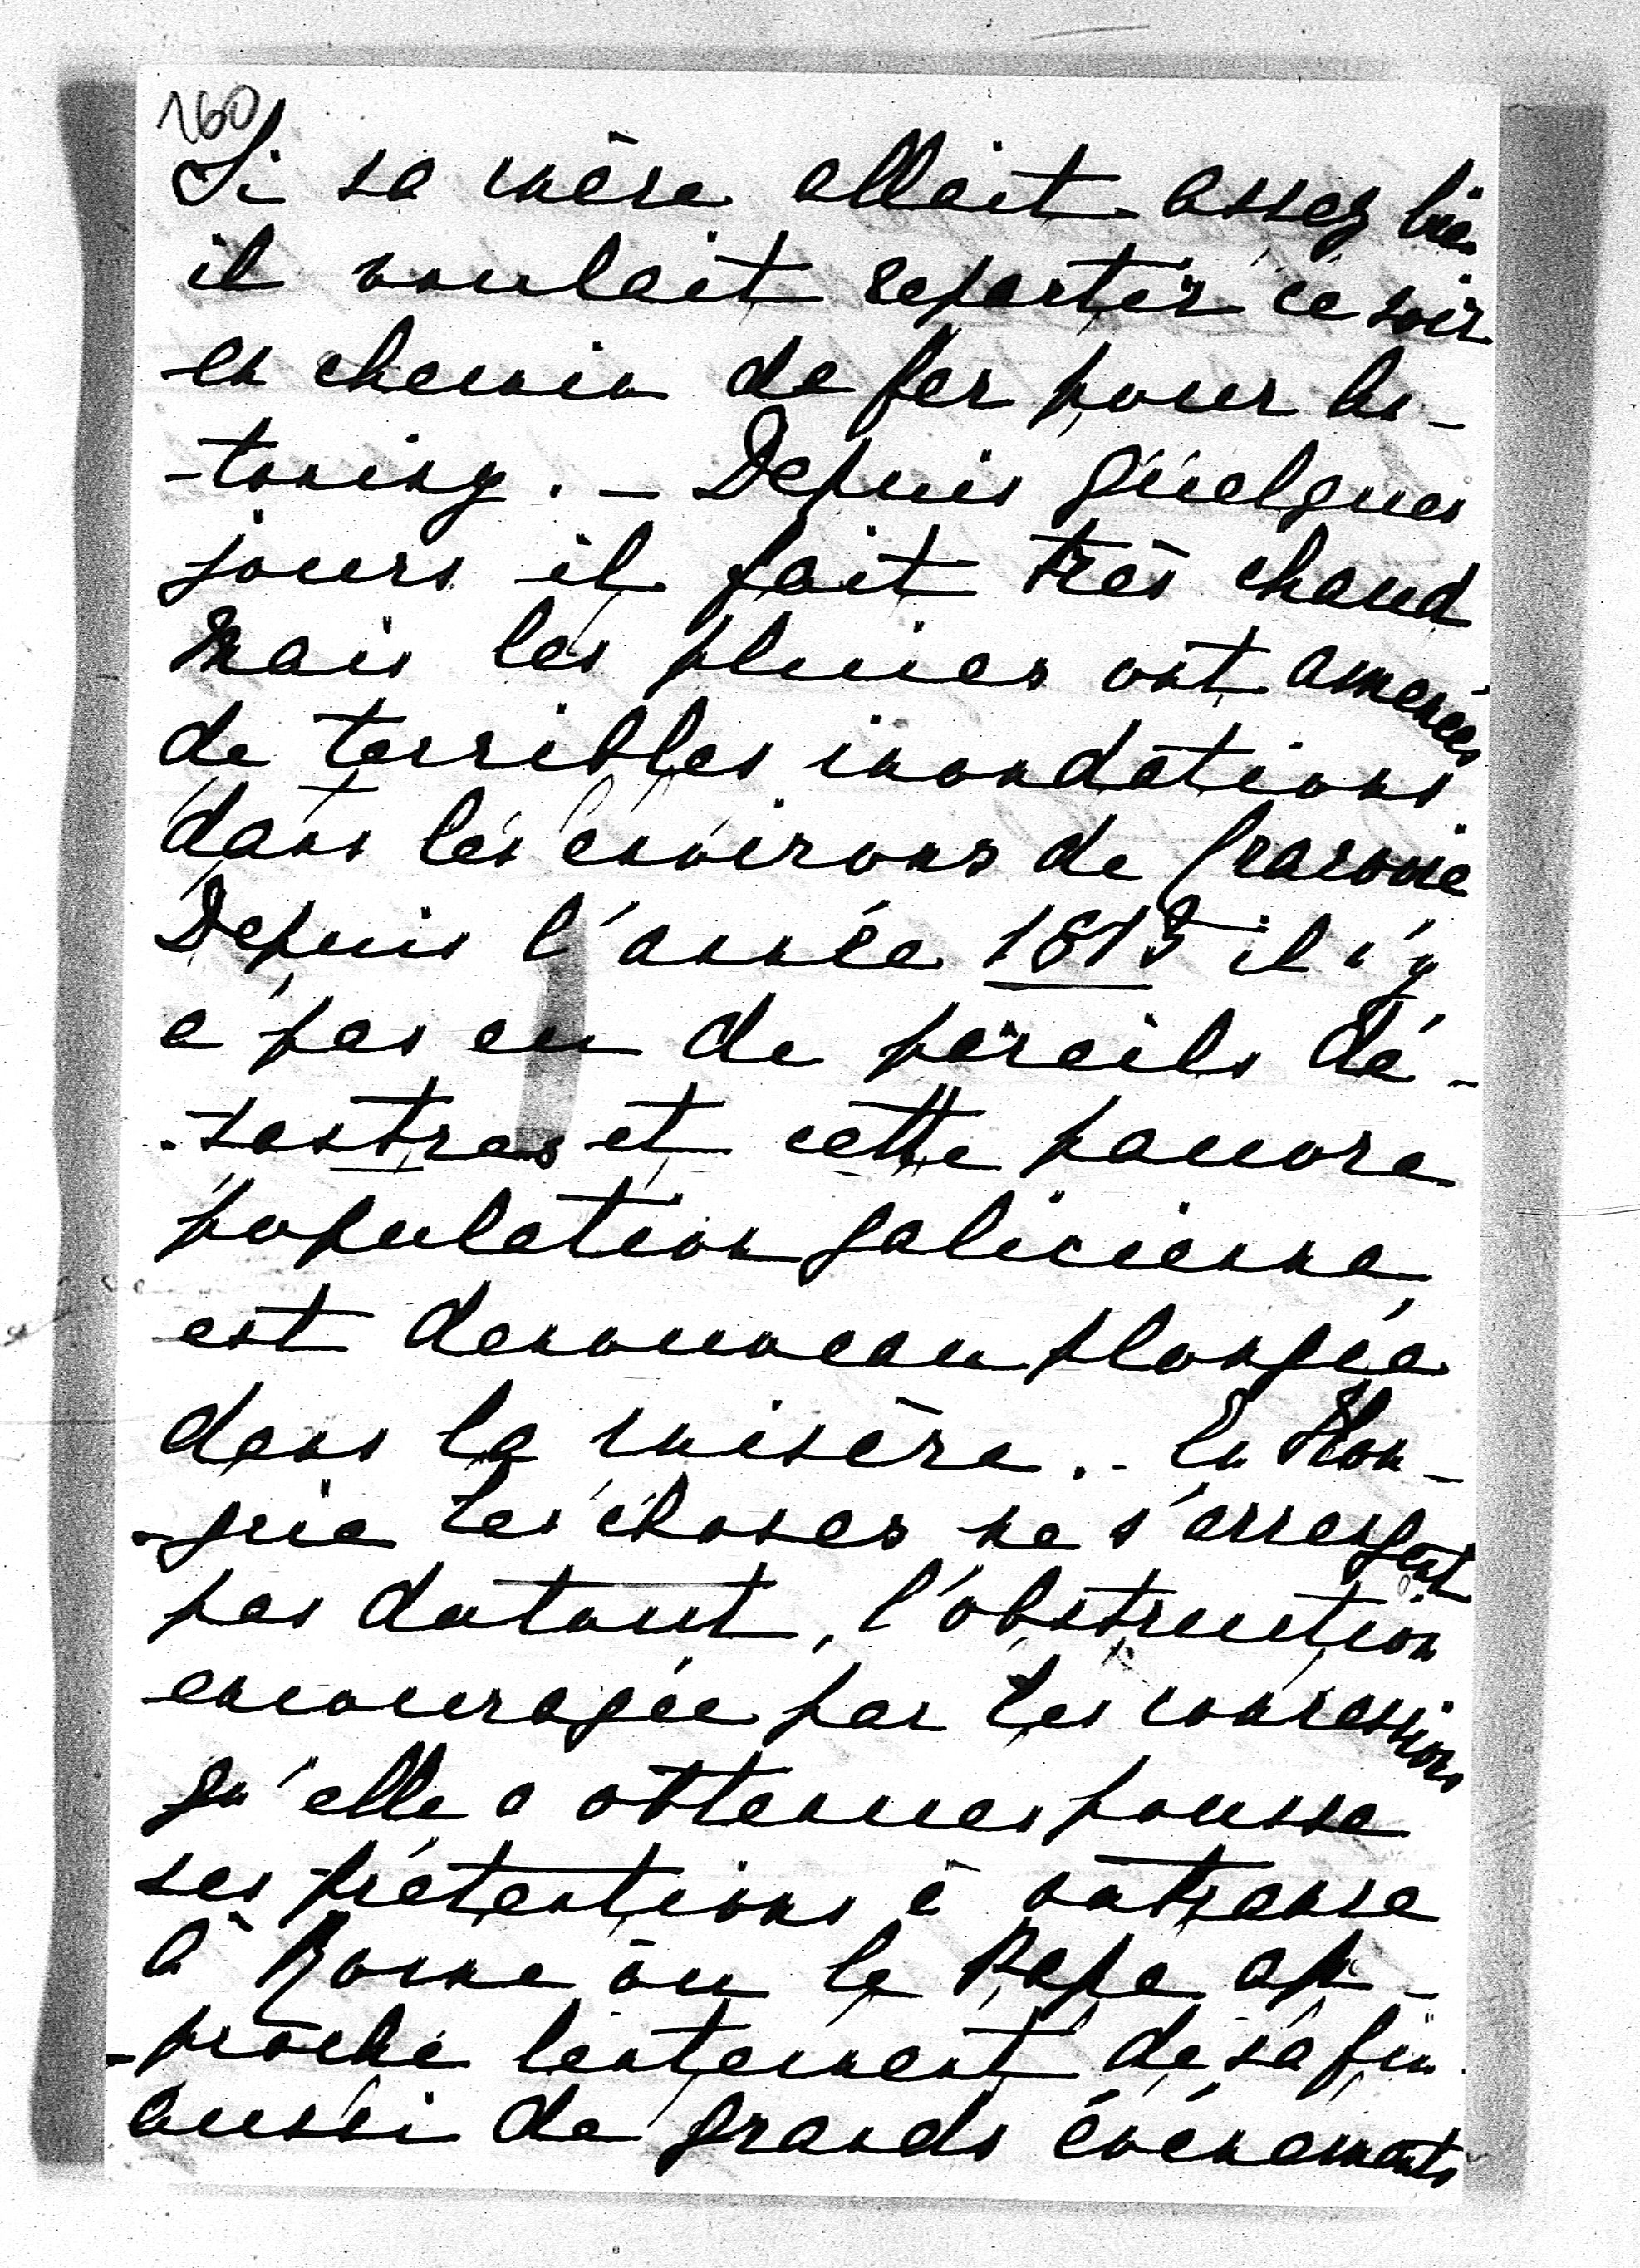 160
Si sa mère allait assez bien
il voulait repartir ce soir
en chemin de fer pour An-
-toniny. – Depuis quelques
jours il fait très chaud
mais les pluies ont amenées
de terribles inondations
dans les environs de Cracovie
Depuis l'année 1813 il n'y
a pas eu de pareils dé-
-sastres et cette pauvre
population galicienne
est denouveau plongée
dans la misère. – En Hon-
-grie les choses ne s'arrangent
pas dutout, l'obstruction
encouragée par les concessions
qu'elle a obtenues pousse
ses prétentions à outrance
à Rome où le Pape ap-
-proche lentement de sa fin
aussi de grands événements